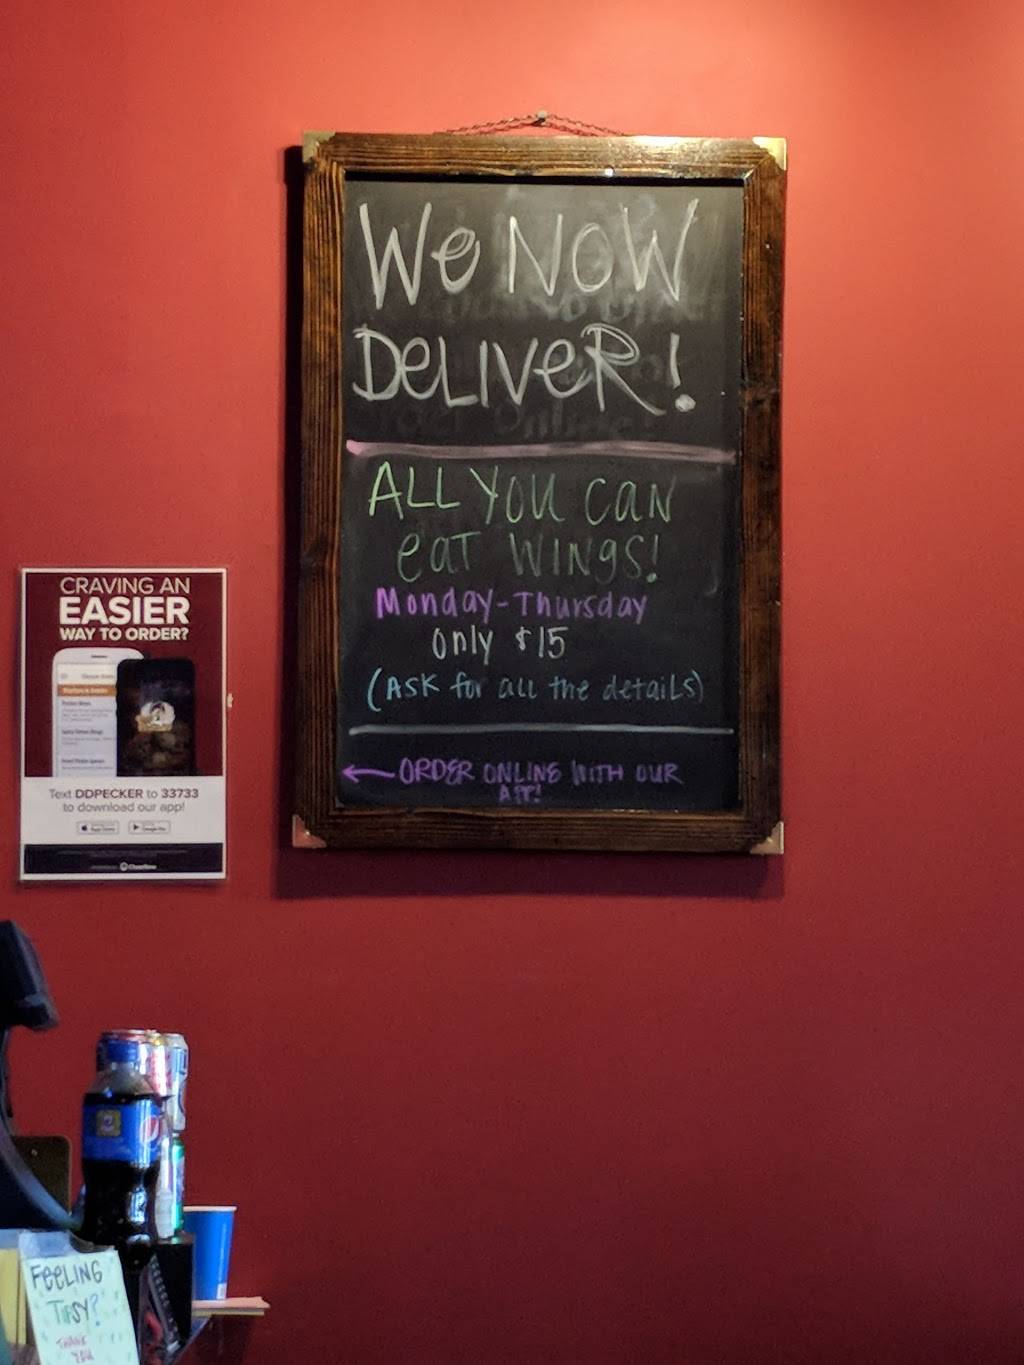 We NOW
DeLIVeR!
ALL YOU CAN
eAT WINgS!
Monday-Thursday
Only $15
(ASK for all the detaiLS)
← ORDER ONLINE WITH OUR
APP!
CRAVING AN
EASIER
WAY TO ORDER?
Text DDPECKER to 33733
to download our app!
App Store
Google Play
FeeLING
TIPSY?
THANK
YOU